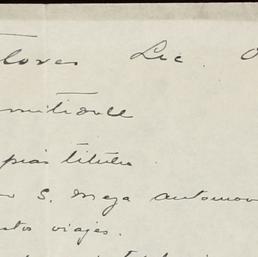 Flores Lic. O
mitidole
pias titulo
S. Meza automov
tos viajes.